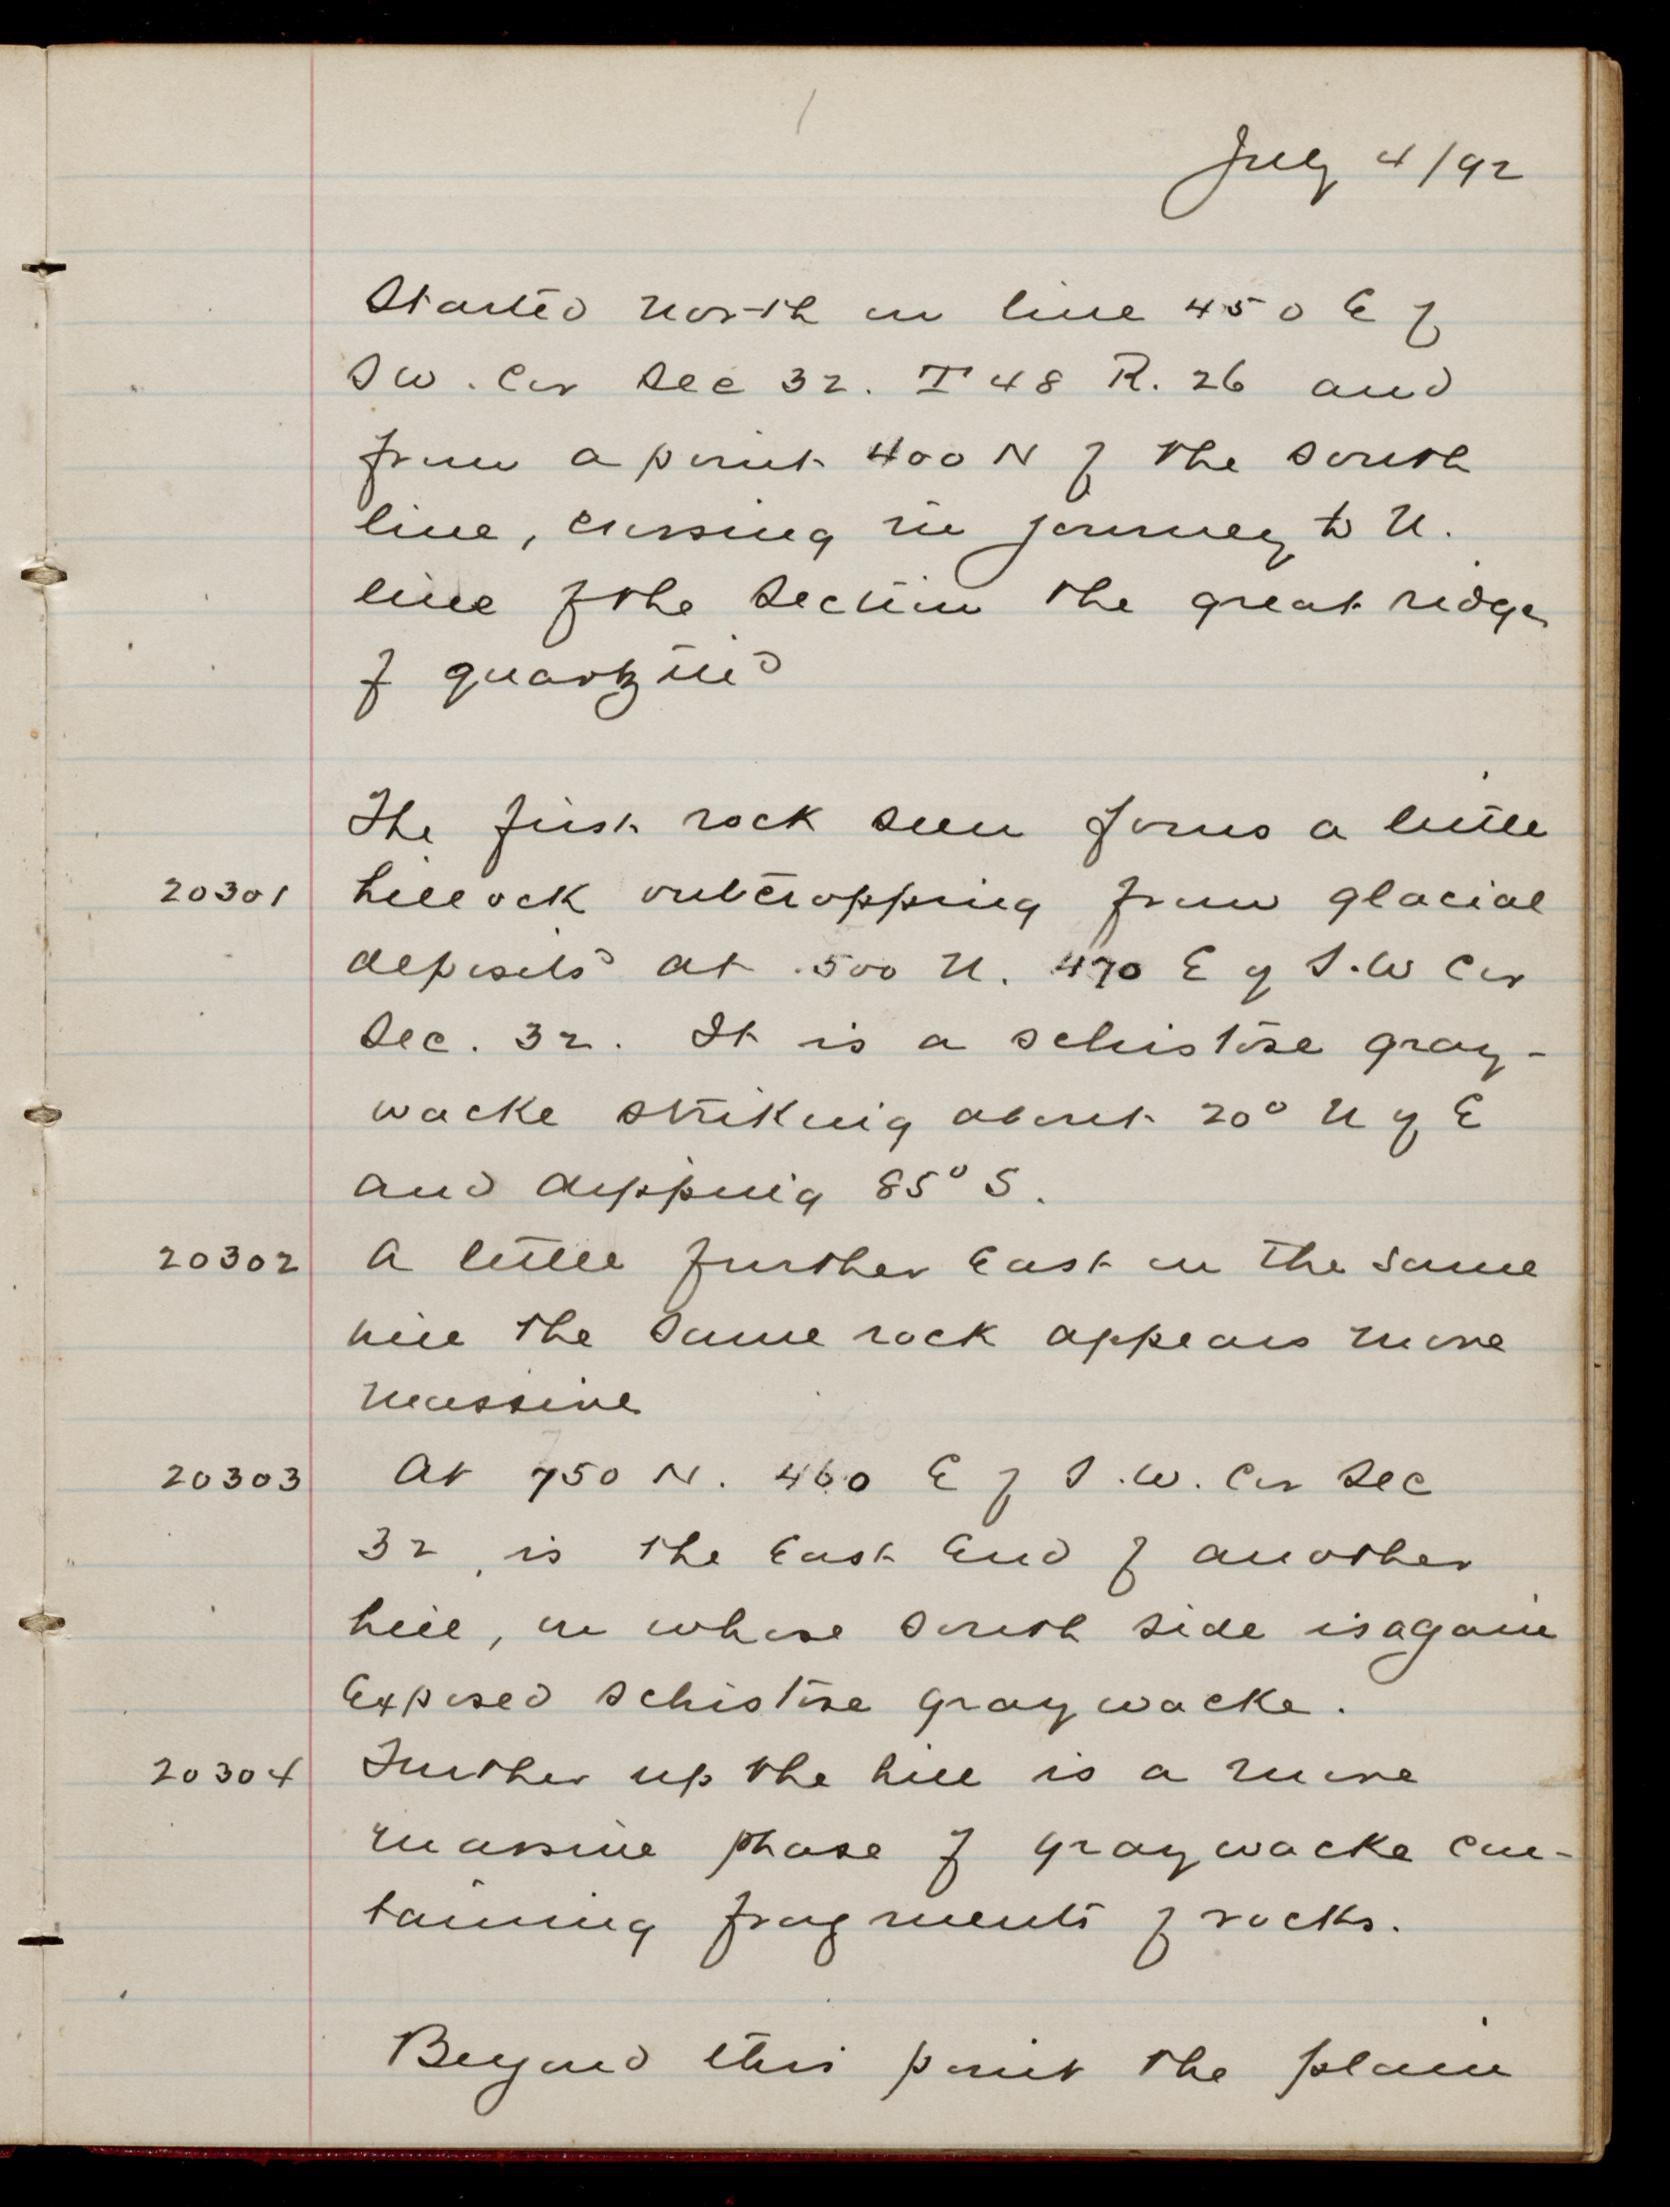 1
July 4/92
Started north on line 450 E of
SW. Cor Sec 32. T 48 R. 26 and
from a point 400 N of the south
line, crossing in journey to N.
line of the section the great ridge
of quartzite
The first rock seen forms a little
20301 hillock outcropping from glacial
deposits at 500 N. 470 E of S.W Cor
Sec. 32. It is a schistose gray-
wacke striking about 20° N of E
and dipping 85° S.
20302 A little further East on the same
hill the same rock appears more
massive
20303 At 750 N. 460 E of S.W. Cor Sec
32, is the East End of another
hill, on whose south side is again
Exposed schistose graywacke.
20304 Further up the hill is a more
massive phase of graywacke con-
taining fragments of rocks.
Beyond this point the plain